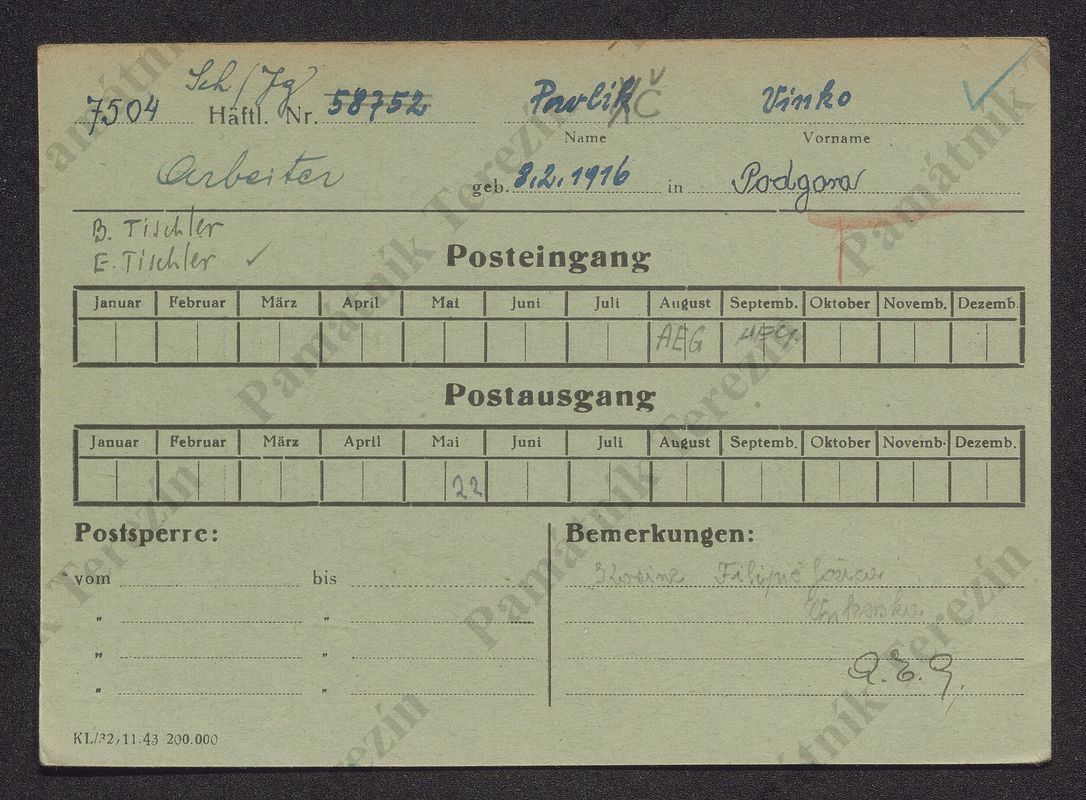 Sch/Jg
7504 Häftl. Nr. 58752 Pavlik Č Vinko
Name Vorname
Arbeiter geb. 8.2.1916 in Podgora
B. Tischler
E. Tischler ✓
Posteingang
Januar Februar März April Mai Juni Juli August Septemb. Oktober Novemb. Dezemb.
AEG AEG.
Postausgang
Januar Februar März April Mai Juni Juli August Septemb. Oktober Novemb. Dezemb.
22
Postsperre: Bemerkungen:
vom bis Filipić
" "
" "
A.E.G.
" "
KL/32/11.43 200.000
Památník Terezín